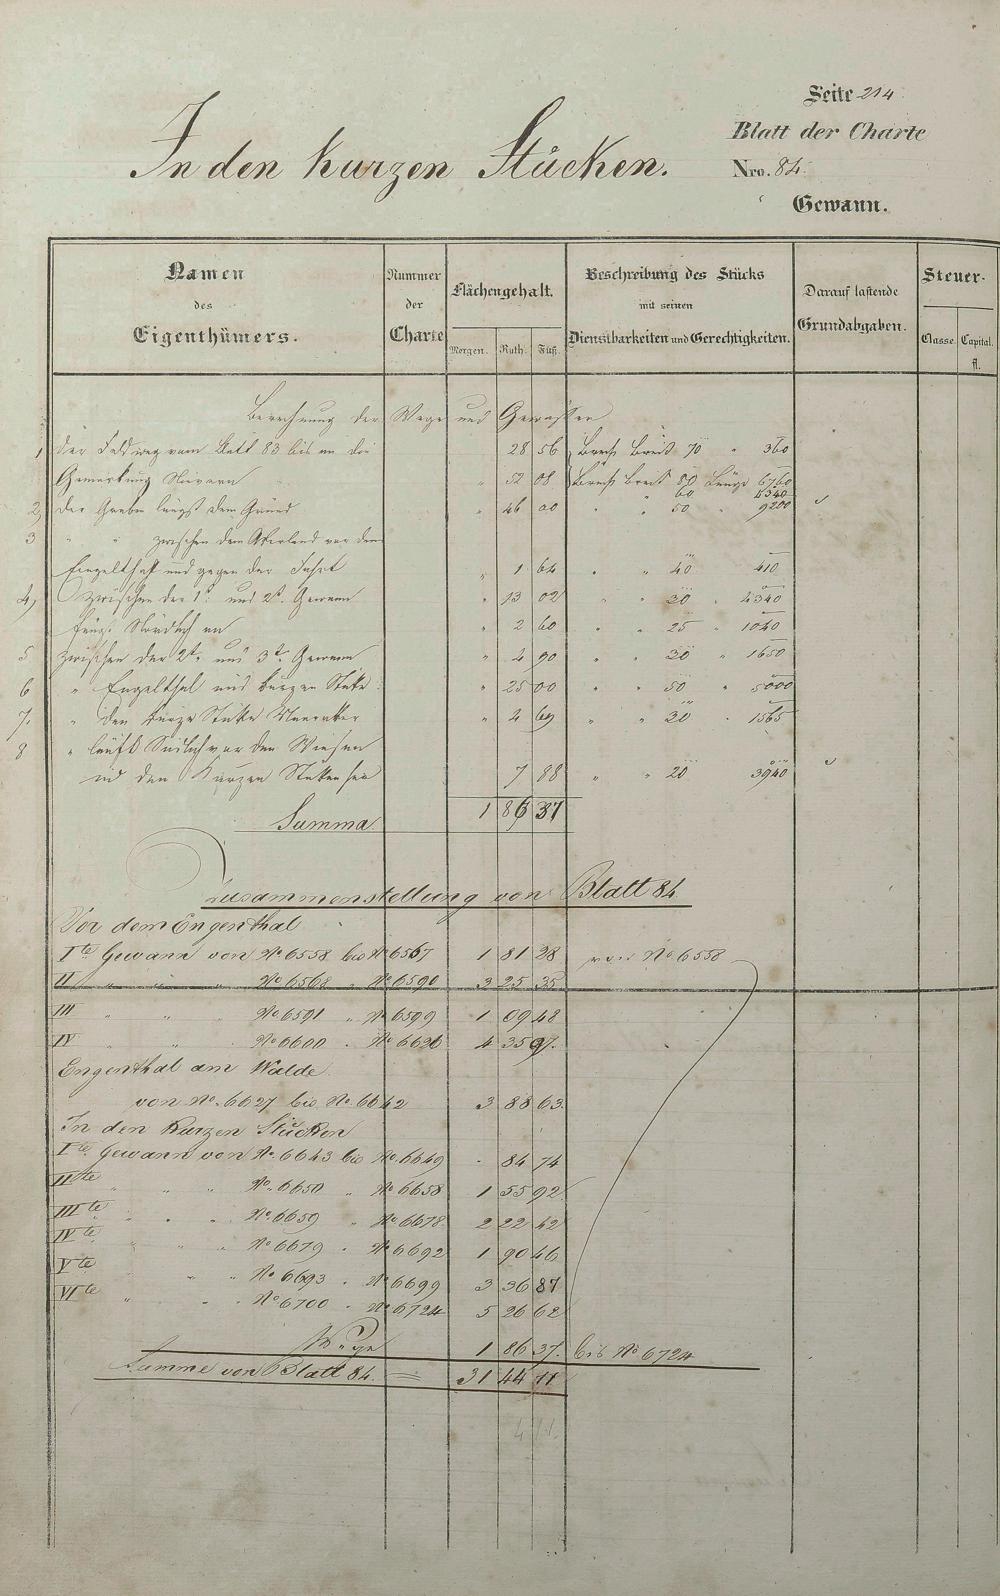 Seite 214
Blatt der Charte
In den kurzen Stücken.
Nro. 84.
Gewann.
Namen des Eigenthümers.
Nummer der Charte
Flächengehalt.
Morgen. Ruth. Fuß.
Beschreibung des Stücks mit seinen Dienstbarkeiten und Gerechtigkeiten.
Darauf lastende Grundabgaben.
Steuer-
Classe. Capital. fl.
Berechnung der Wege und Gewässer
1 Der Feldweg vom Blatt 83 bis an die 28 56 Breite 70 " 360
Gemarkung Nievern " 52 08 Breite 80 Länge 6760
60 4340
2, Der Graben längst dem Gründ " 46 00 " " 50 " 9200
3 " " zwischen dem Ackerland vor dem
Engelthal und gegen der " 1 64 " " 40 410
4, zwischen der 1t. und 2t. Gewann " 13 02 " " 30 " 4340
längst Nördlich an " 2 60 " " 25 " 1040
5 Zwischen der 2t. und 3t. Gewann " 4 90 " " 30 " 1650
6 " Engelthal und kurzen Stüke " 25 00 " " 50 " 5000
7. " den kurze Stüke " 4 69 " " 30 " 1565
8 " läuft Südlich vor den Wiesen
in den Kurzen Stüken 7 88 " " 20 3940
Summa. 1 86 37
Zusammenstellung von Blatt 84
Vor dem Engenthal
Ite Gewann von No 6558 bis No 6567 1 81 28 von No 6558
II " " " No 6568 " No 6590 3 25 35
III " " " No 6591 " No 6599 1 09 48
IV " " " No 6600 " No 6626 4 35 97.
Engenthal am Walde
von No. 6627 bis No. 6642 3 88 63.
In den Kurzen Stücken
Ite Gewann von No. 6643 bis No. 6649 - 84 74
IIte " " " No. 6650 " No 6658 1 55 92
IIIte " " " No. 6659 " No 6678 2 22 42
IVte " " " No 6679 " No 6692 1 90 46
Vte " " No 6693 " No 6699 3 36 87
VIte " " " No 6700 " No 6724 5 26 62
Wege 1 86 37. bis No 6724
Summe von Blatt 84. 31 44 11